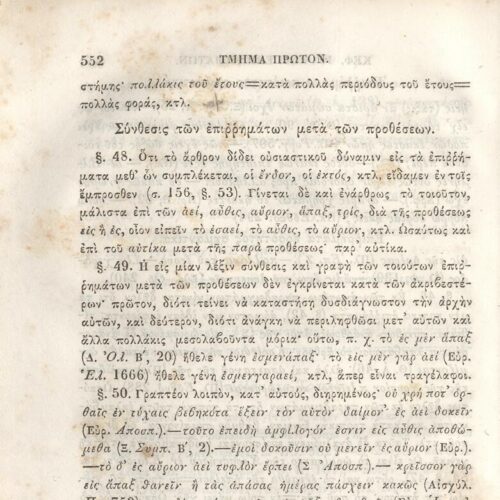 552 ΤΜΗΜΑ ΠΡΩΤΟΝ.
στήμης· πολλάκις τοῦ ἔτους=κατὰ πολλὰς περιόδους τοῦ ἔτους=
πολλὰς φοράς, κτλ.
Σύνθεσις τῶν ἐπιῤῥημάτων μετὰ τῶν προθέσεων.
§. 48. Ὅτι τὸ ἄρθρον δίδει οὐσιαστικοῦ δύναμιν εἰς τὰ ἐπιῤῥή-
ματα μεθ᾽ ὧν συμπλέκεται, οἱ ἔνδον, οἱ ἐκτός, κτλ, εἴδαμεν ἐν τοῖς
ἔμπροσθεν (σ. 156, §. 53). Γίνεται δὲ καὶ ἐνάρθρως τὸ τοιοῦτον,
μάλιστα ἐπὶ τῶν ἀεί, αὖθις, αὔριον, ἅπαξ, τρίς, διὰ τῆς προθέσεως
εἰς ἢ ἐς, οἷον εἰπεῖν τὸ ἐσαεί, τὸ αὖθις, τὸ αὔριον, κτλ. Ὡσαύτως καὶ
ἐπὶ τοῦ αὐτίκα μετὰ τῆς παρὰ προθέσεως· παρ᾽ αὐτίκα.
§. 49. Ἡ εἰς μίαν λέξιν σύνθεσις καὶ γραφὴ τῶν τοιούτων ἐπιῤ-
ῥημάτων μετὰ τῶν προθέσεων δὲν ἐγκρίνεται κατὰ τῶν ἀκριβεστέ-
ρων· πρῶτον, διότι τείνει νὰ καταστήσῃ δυσδιάγνωστον τὴν ἀρχὴν
αὐτῶν, καὶ δεύτερον, διότι ἀνάγκη νὰ περιληφθῶσι μετ᾽ αὐτῶν καὶ
ἄλλα πολλάκις μεσολαβοῦντα μόρια· οὕτω, π. χ. τὸ ἐς μὲν ἅπαξ
(Δ. Ὀλ. Β΄, 20) ἤθελε γένῃ ἐσμενάπαξ· τὸ εἰς μὲν γὰρ ἀεὶ (Εὐρ.
Ἑλ. 1666) ἤθελε γένῃ ἐσμενγαραεί, κτλ, ἅπερ εἶναι τραγέλαφοι.
§. 50. Γραπτέον λοιπὸν, κατ᾽ αὐτούς, διῃρημένως· οὐ χρή ποτ᾽ ὀρ-
θαῖς ἐν τύχαις βεβηκότα ἕξειν τὸν αὐτὸν δαίμον᾽ ἐς ἀεὶ δοκεῖν
(Εὐρ. Ἀποσπ.).—τοῦτο ἐπειδὴ ἀμφίλογόν ἐστιν εἰς αὖθις ἀποθώ-
μεθα (Ξ. Συμπ. Β΄, 2).—ἐμοὶ δοκοῦσιν οὐ μενεῖν ἐς αὔριον (Εὐρ.).
—τὸ δ᾽ ἐς αὔριον ἀεὶ τυφλὸν ἕρπει (Σ Ἀποσπ.).— κρεῖσσον γὰρ
εἰς ἅπαξ θανεῖν ἢ τὰς ἁπάσας ἡμέρας πάσχειν κακῶς (Αἰσχύλ.